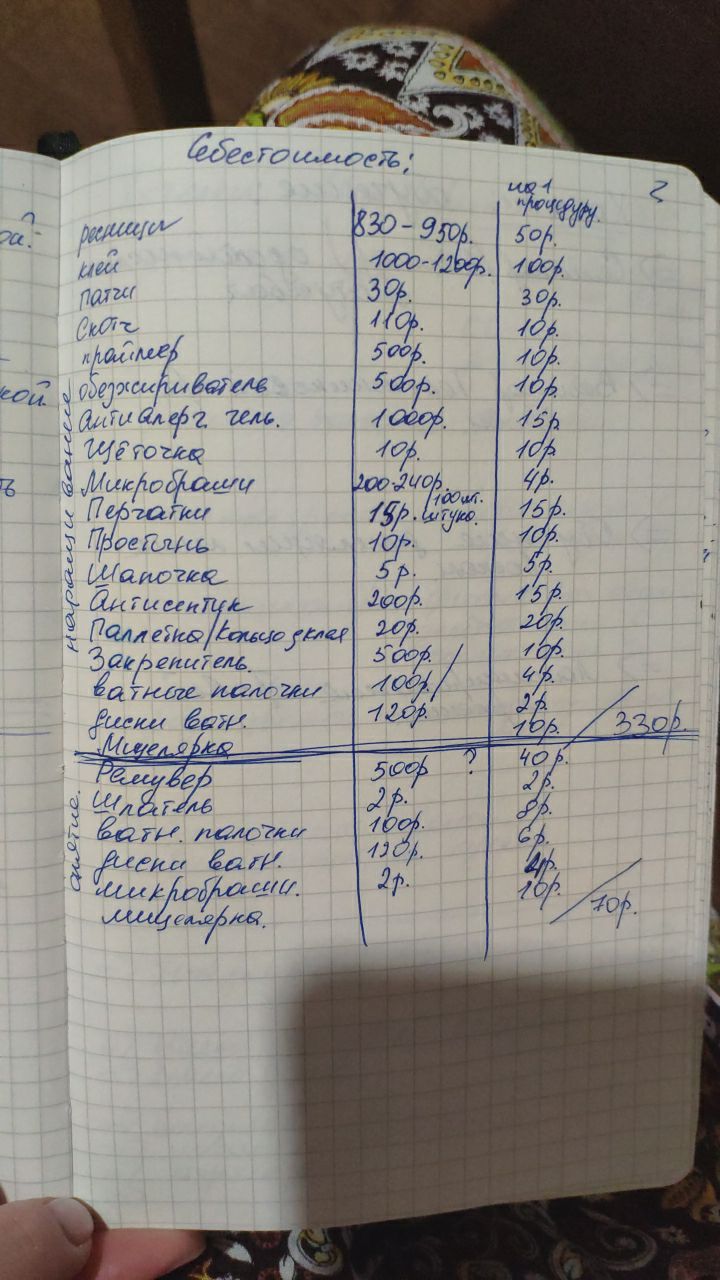 Себестоимость:
на 1
процедуру.
ресницы 830-950р. 50р.
клей 1000-1200р. 100р.
патчи 30р. 30р.
Скотч 110р. 10р.
праймер 500р. 10р.
обезжириватель 500р. 10р.
Антиалерг. гель. 1000р. 15р.
Щёточка 10р. 10р.
Микробраши 200-240р. 100шт. 4р.
Перчатки 15р. штука. 15р.
Простынь 10р. 10р.
Шапочка 5р. 5р.
Антисептик 200р. 15р.
Паллетка/кольцо д клея 20р. 20р.
Закрепитель. 500р. 10р.
ватные палочки 100р. 4р.
диски ватн. 120р. 2р.
Мицелярка 10р. 330р.
наращивание
Ремувер 500р ? 40р.
Шпатель 2р. 2р.
ватн. палочки 100р. 8р.
диски ватн. 120р. 6р.
микробраши. 2р. 4р.
мицелярка. 10р. 70р.
снятие.